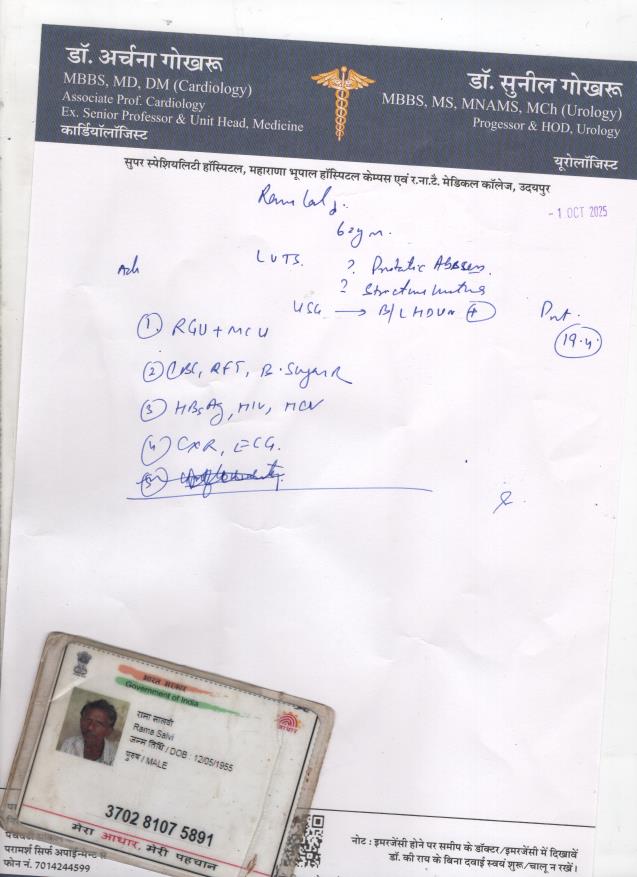 डॉ. अर्चना गोखरू
MBBS, MD, DM (Cardiology)
Associate Prof. Cardiology
Ex. Senior Professor & Unit Head, Medicine
कार्डियॉलॉजिस्ट
डॉ. सुनील गोखरू
MBBS, MS, MNAMS, MCh (Urology)
Progessor & HOD, Urology
यूरोलॉजिस्ट
सुपर स्पेशियलिटी हॉस्पिटल, महाराणा भूपाल हॉस्पिटल केम्पस एवं र.ना.टै. मेडिकल कॉलेज, उदयपुर
Rama Lal
- 1 OCT 2025
LUTS. ? Prostatic Abscess.
Adv ? Stricture urethra
USG → B/L HDUN +
19.4
① RGU + MCU
② CBC, RFT, B. Sugar R
③ HBsAg, HIV, HCV
④ CXR, ECG.
⑤
भारत सरकार
Government of India
रामा सालवी
Rama Salvi
जन्म तिथि / DOB : 12/05/1955
पुरुष / MALE
आधार
3702 8107 5891
मेरा आधार, मेरी पहचान
परामर्श सिर्फ अपाईन्मेन्ट
फोन नं. 7014244599
नोट : इमरजेंसी होने पर समीप के डॉक्टर/इमरजेंसी में दिखावें
डॉ. की राय के बिना दवाई स्वयं शुरू/चालू न रखें।